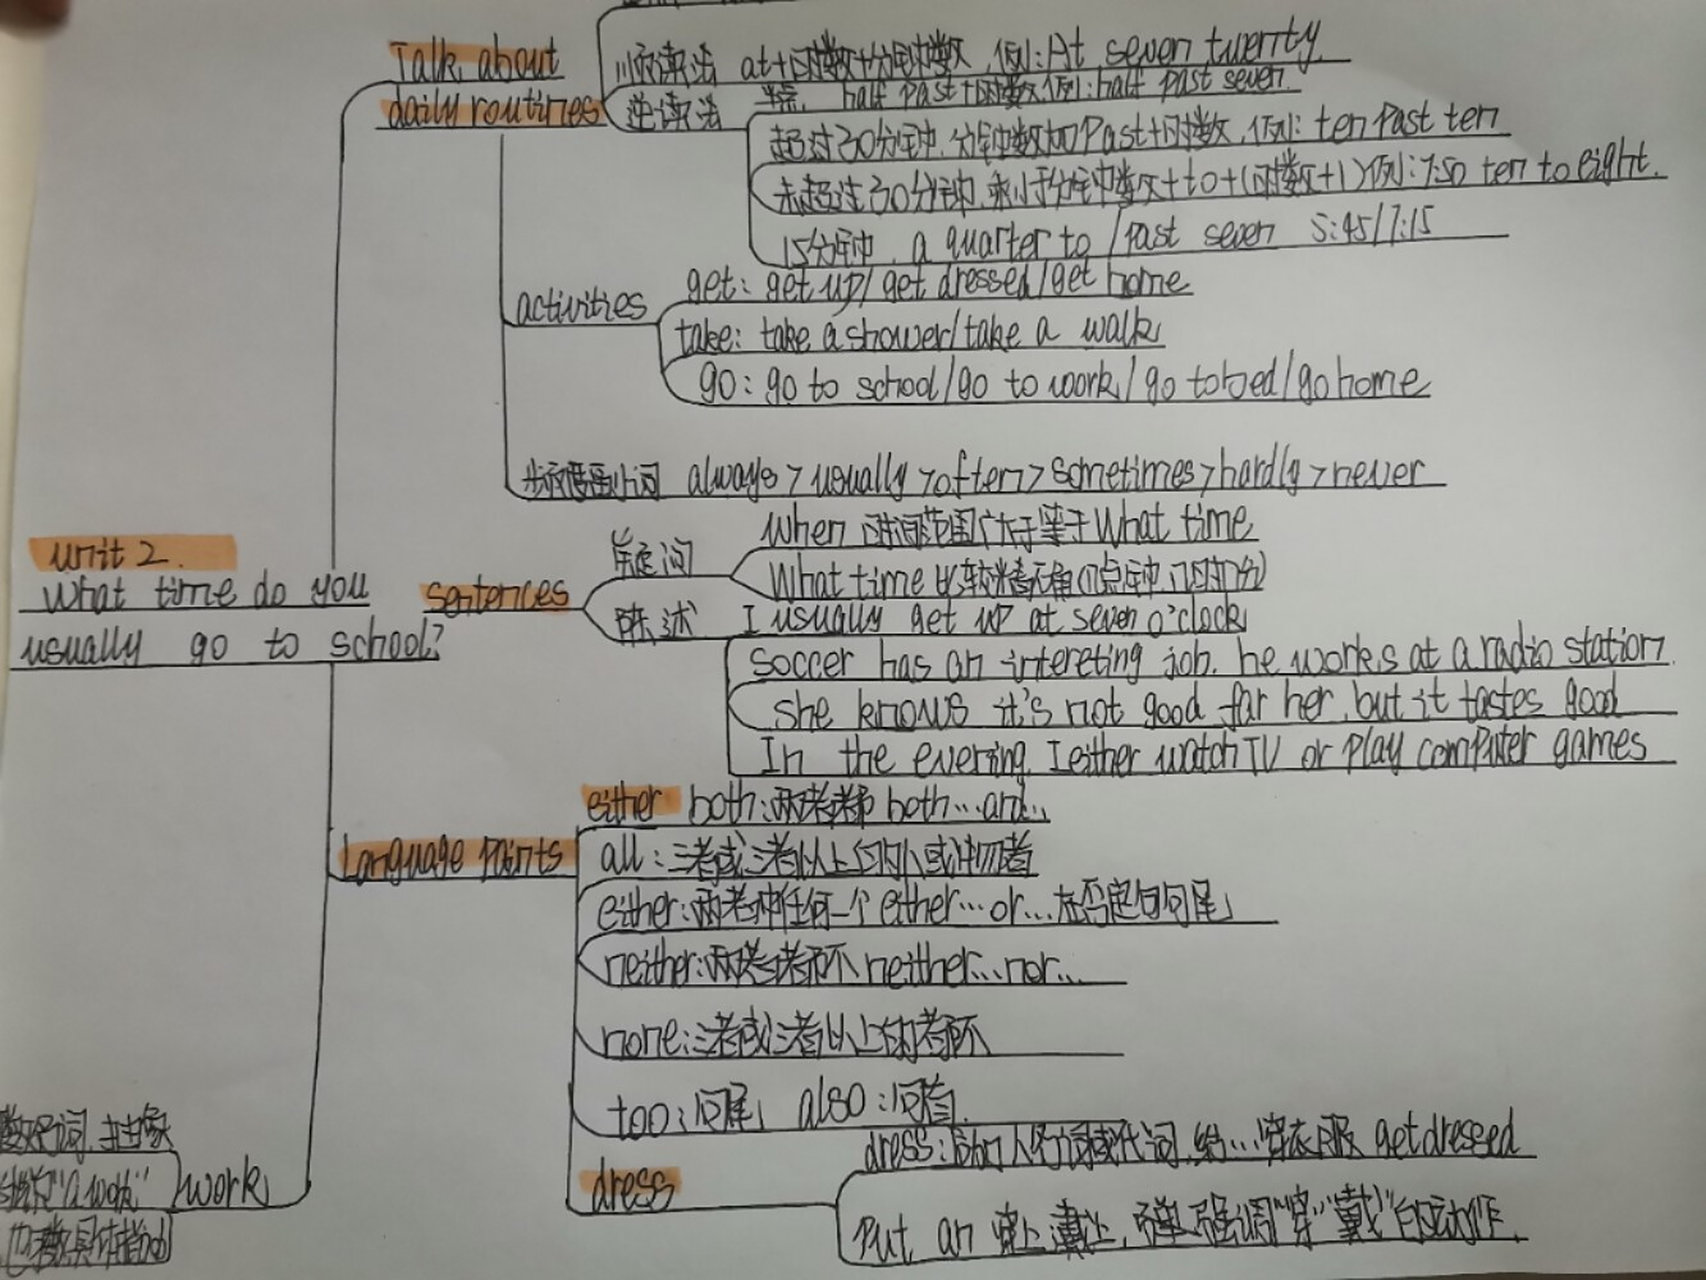 Talk about
daily routines
顺读法 at+时数+分钟数，例：At seven twenty
逆读法 半点 half past+时数例：half past seven.
超过30分钟，分钟数加past+时数，例：ten past ten
未超过30分钟，分钟数+to+(时数+1)例：7:50 ten to eight.
15分钟 a quarter to/past seven 5:45/7:15
activities
get: get up/get dressed/get home
take: take a shower/take a walk
go: go to school/go to work/go to bed/go home
频度副词 always>usually>often>sometimes>hardly>never
unit 2.
What time do you
usually go to school?
sentences
疑问
When 时间范围广大于等于What time
What time 比较精确(几点钟，几时几分)
陈述 I usually get up at seven o'clock
soccer has an intereting job. he works at a radio station.
she knows it's not good far her, but it tastes good
In the evering, I either watch TV or play computer games
Language Points
either both:两者都 both…and…
all：三者或三者以上的人或事物
either:两者中任何一个 either…or…在否定句句尾
neither:两者都不 neither…nor…
none:三者或三者以上的都不
too：句尾 also：句首.
dress
dress：后加人称或代词，给…穿衣服 get dressed
Put an 穿上，戴上，强调“穿”“戴”的动作.
work
数名词，
"a work"